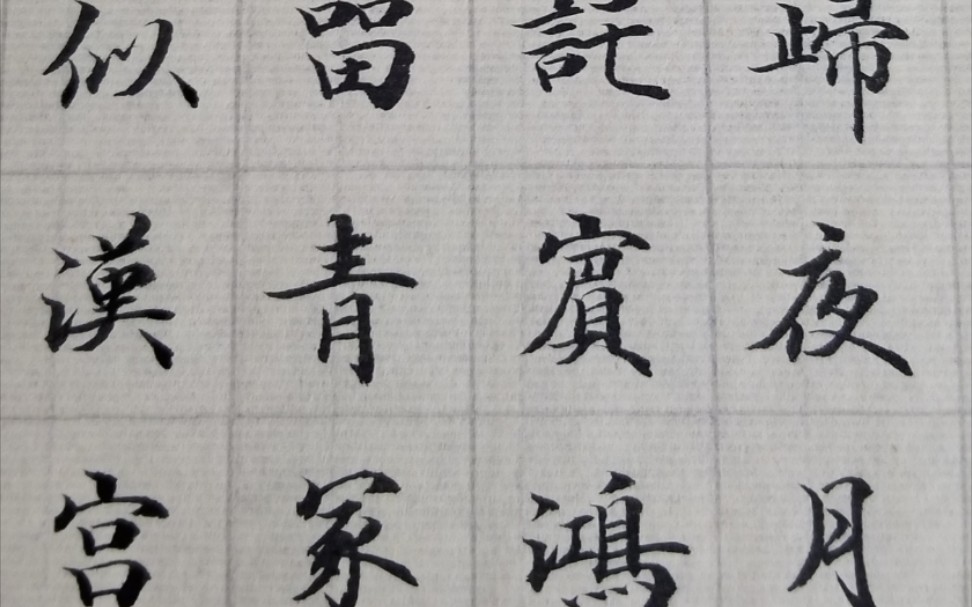 歸夜月
託賓鴻
留青冢
似漢宮